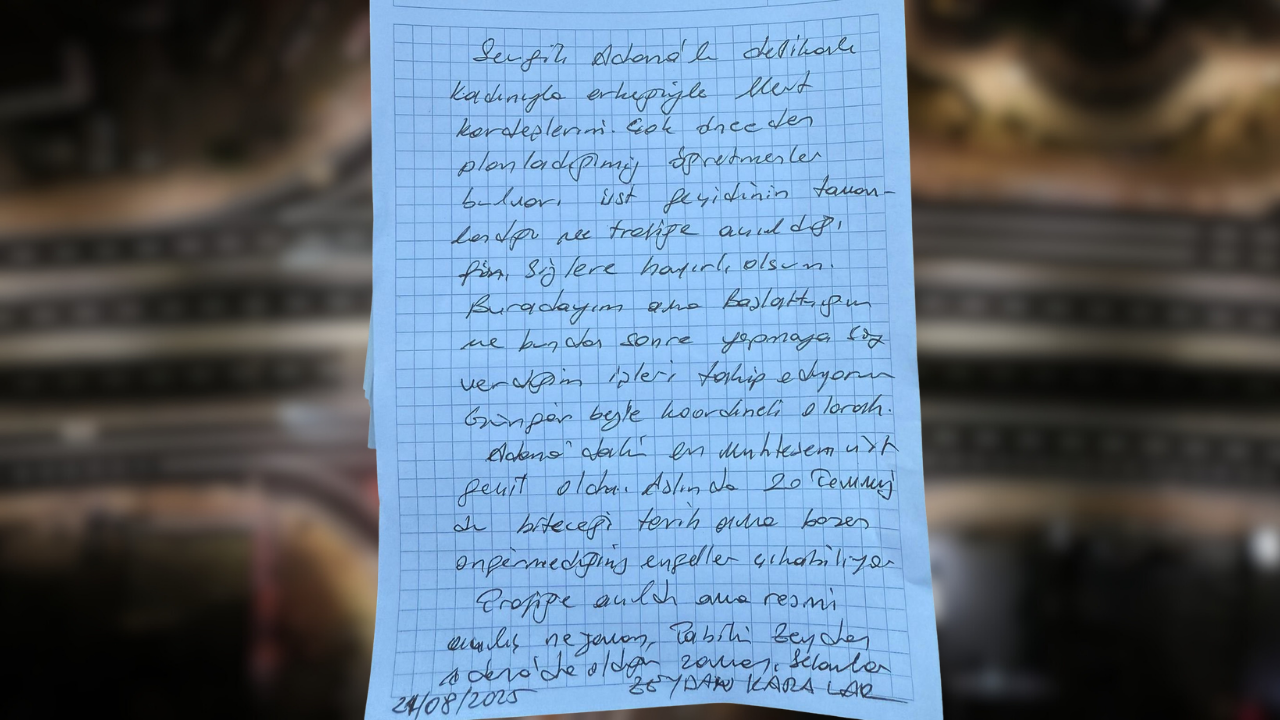 Sevgili Adana'lı delikanlı
kadınıyla erkeğiyle Mert
kardeşlerim. Çok önceden
planladığımız öğretmenler
bulvarı üst geçidinin tamam-
landığı ve trafiğe açıldığı
gün, sizlere hayırlı olsun.
Buradayım ama başlattığım
ve bundan sonra yapmaya söz
verdiğim işleri takip ediyorum
Güngör beyle koordineli olarak.
Adana'daki en muhteşem üst
geçit oldu. Aslında 20 Temmuz
du biteceği tarih ama bazen
öngörmediğiniz engeller çıkabiliyor
Trafiğe açıldı ama resmi
açılış ne zaman, Tabiki Zeydan
Adana'da olduğu zaman. Selamlar
21/08/2025 ZEYDAN KARALAR